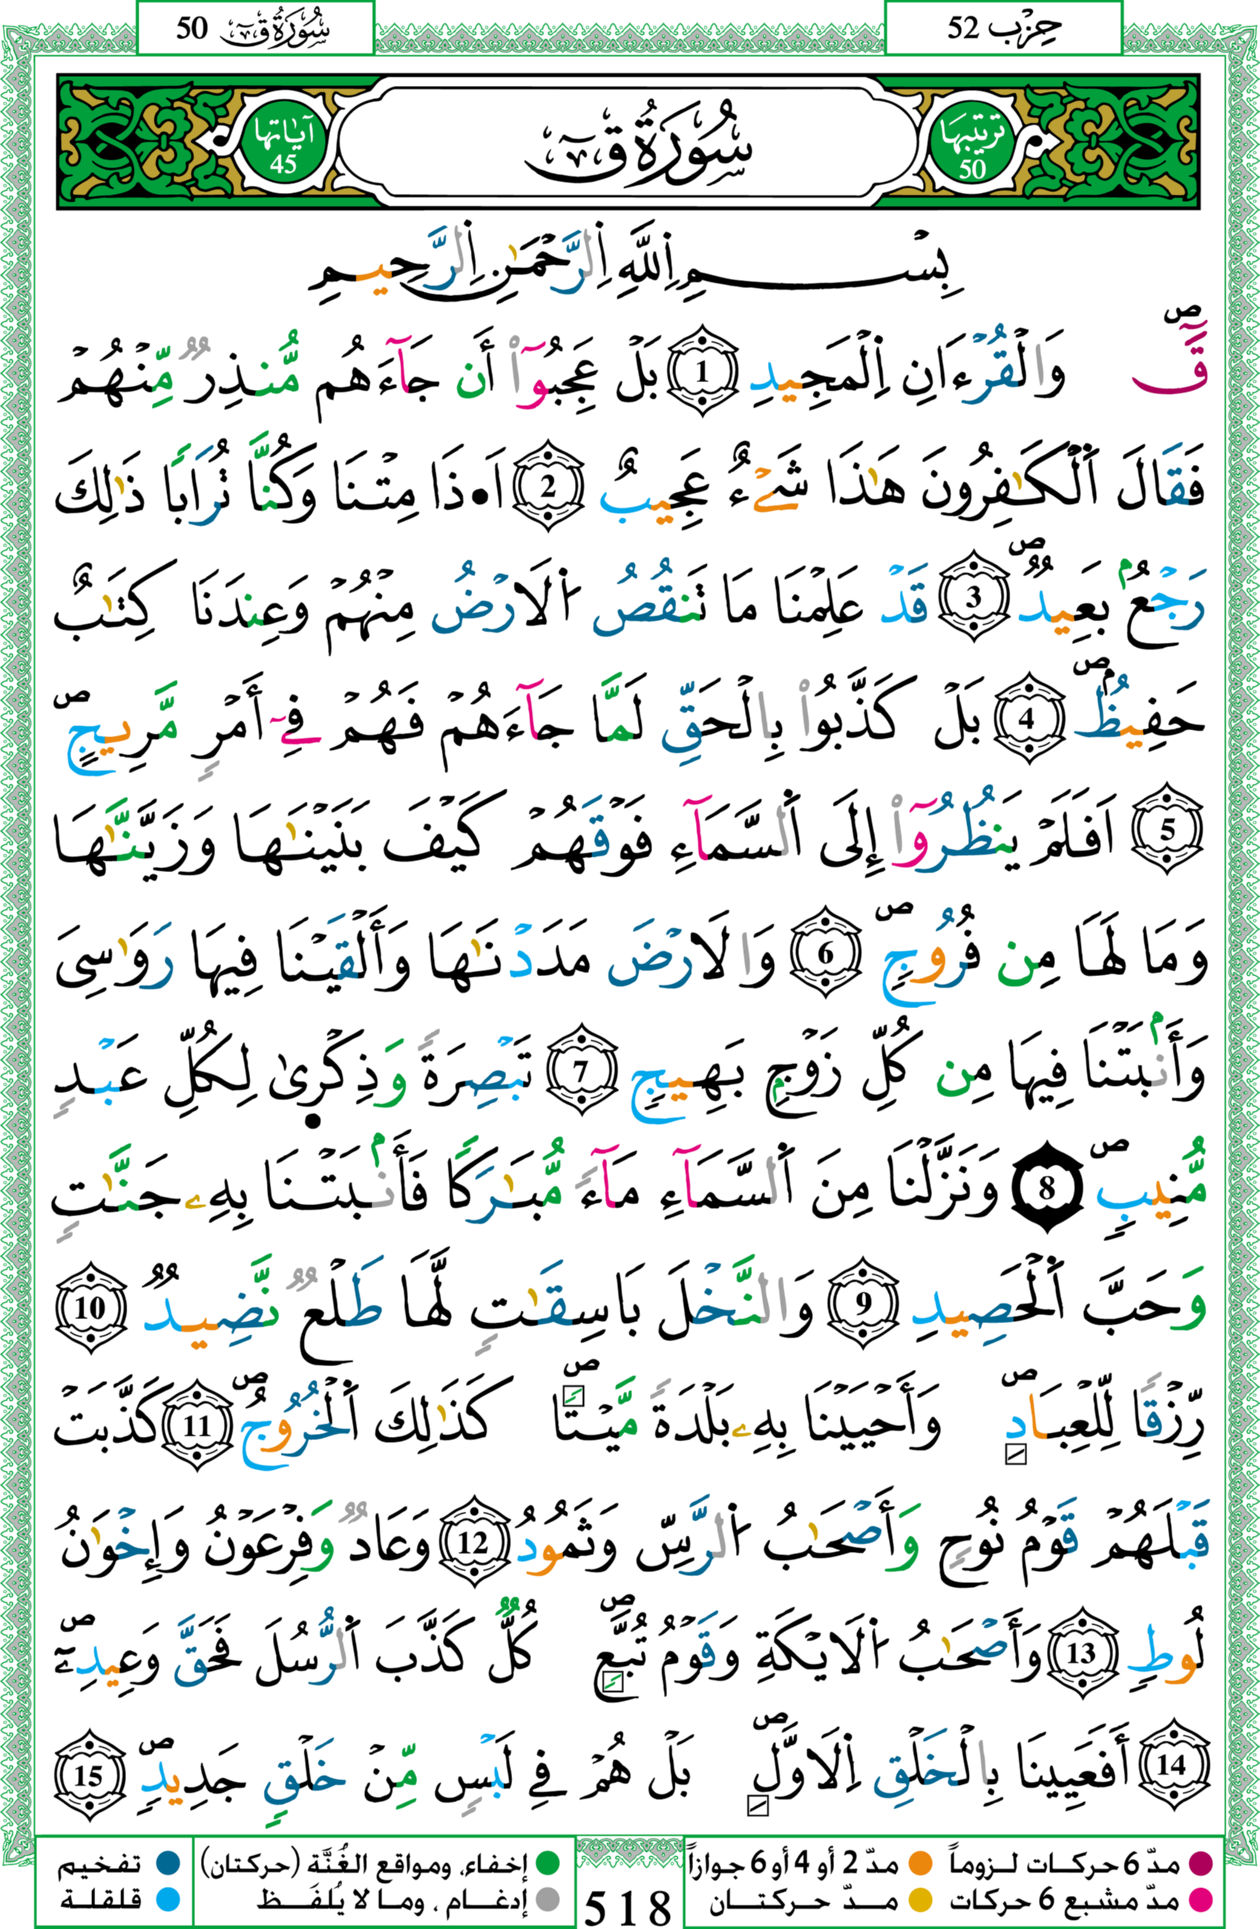 حِزْب 52
سُورَةُ قٓ 50
تَرتيبُهَا 50
سُورَةُ قٓ
آيَاتهَا 45
بِسْمِ اِللَّهِ اِلرَّحْمَٰنِ اِلرَّحِيمِ
قَٓ ص وَالْقُرْءَانِ اِلْمَجِيدِ 1 بَلْ عَجِبُوٓاْ أَن جَآءَهُم مُّنذِرٌ مِّنْهُمْ
فَقَالَ اَلْكَٰفِرُونَ هَٰذَا شَےْءٌ عَجِيبٌ 2 اَ•ذَا مِتْنَا وَكُنَّا تُرَاباً ذَٰلِكَ
رَجْعُۢ بَعِيدٌ ص 3 قَدْ عَلِمْنَا مَا تَنقُصُ اُلَارْضُ مِنْهُمْ وَعِندَنَا كِتَٰبٌ
حَفِيظُۢ ص 4 بَلْ كَذَّبُواْ بِالْحَقِّ لَمَّا جَآءَهُمْ فَهُمْ فِےٓ أَمْرٍ مَّرِيجٍ ص
5 اَفَلَمْ يَنظُرُوٓاْ إِلَى اَلسَّمَآءِ فَوْقَهُمْ كَيْفَ بَنَيْنَٰهَا وَزَيَّنَّٰهَا
وَمَا لَهَا مِن فُرُوجٍ ص 6 وَالَارْضَ مَدَدْنَٰهَا وَأَلْقَيْنَا فِيهَا رَوَٰسِىَ
وَأَنۢبَتْنَا فِيهَا مِن كُلِّ زَوْجِۢ بَهِيجٍ 7 تَبْصِرَةً وَذِكْرٜىٰ لِكُلِّ عَبْدٍ
مُّنِيبٍ ص 8 وَنَزَّلْنَا مِنَ اَلسَّمَآءِ مَآءً مُّبَٰرَكاً فَأَنۢبَتْنَا بِهِۦ جَنَّٰتٍ
وَحَبَّ اَلْحَصِيدِ 9 وَالنَّخْلَ بَاسِقَٰتٍ لَّهَا طَلْعٌ نَّضِيدٌ 10
رِّزْقاً لِّلْعِبَادِ ص وَأَحْيَيْنَا بِهِۦ بَلْدَةً مَّيْتاً ص كَذَٰلِكَ اَلْخُرُوجُ ص 11 كَذَّبَتْ
قَبْلَهُمْ قَوْمُ نُوحٍ وَأَصْحَٰبُ اُلرَّسِّ وَثَمُودُ 12 وَعَادٌ وَفِرْعَوْنُ وَإِخْوَٰنُ
لُوطٍ 13 وَأَصْحَٰبُ اُلَايْكَةِ وَقَوْمُ تُبَّعٍ ص كُلٌّ كَذَّبَ اَلرُّسُلَ فَحَقَّ وَعِيدِۦٓ ص
14 أَفَعَيِينَا بِالْخَلْقِ اِلَاوَّلِ ص بَلْ هُمْ فِے لَبْسٍ مِّنْ خَلْقٍ جَدِيدٍ ص 15
مدّ 6 حركات لـزوماً مدّ 2 أو 4 أو 6 جوازاً إخفاء، ومواقع الغُنَّة (حركتان) تفخيم
مدّ مشبع 6 حركات مـدّ حركتـان إدغـام ، ومـا لا يُلفَـظ قلقلة
518